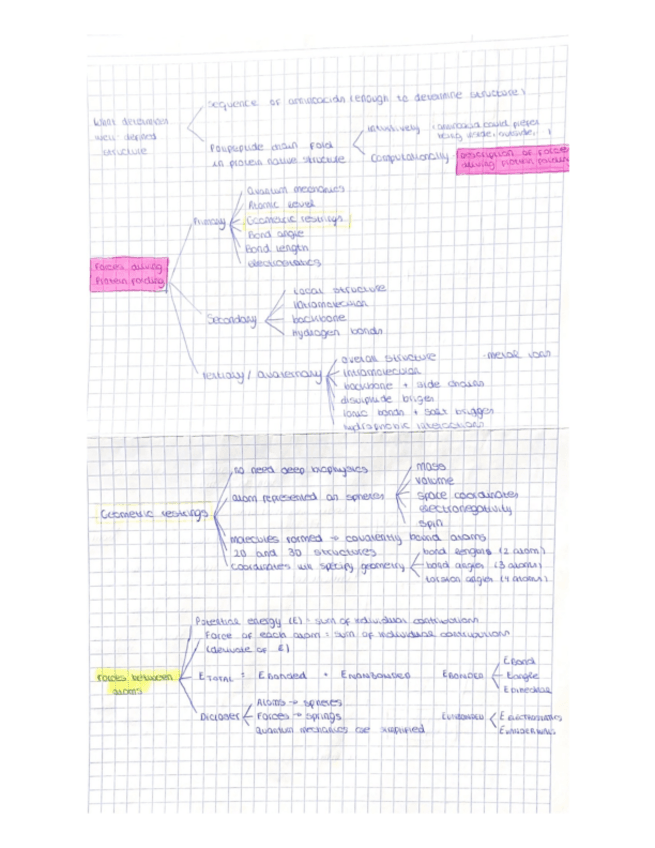 sequence of aminoacids (enough to determine structure)
well defined
structure
Polypeptide main fold
in protein native structure
Intuitively (aminoacid could prefer
being inside, outside, )
Computationally
description of forces
during protein folding
Forces during
Protein folding
Primary
Quantum mechanics
Atomic level
Geometric restrings
Bond angle
Bond length
electrostatics
Secondary
Local structure
intramolecular
backbone
hydrogen bonds
Tertiary / Quaternary
overall structure
intramolecular
backbone + side chains
disulphide briges
ionic bonds + salt brigges
hydrophobic interactions
· metalic ions
Geometric restrings
no need deep biophysics
atom represented an spheres
mass
volume
space coordinates
electronegativity
spin
molecules formed → covalently bound atoms
2D and 3D structures
coordinates specify geometry
bond lenghts (2 atom)
bond angles (3 atoms)
torsion angles (4 atoms)
Forces between
atoms
Potential energy (E) = sum of individual contributions
Force of each atom = sum of individual contributions
(derivate of E)
E TOTAL = E BONDED + E NONBONDED
E BONDED
E Bond
E angle
E dihedral
Atoms → spheres
Forces → springs
Quantum mechanics are simplified
E ELECTROSTATICS
E VANDERWAALS